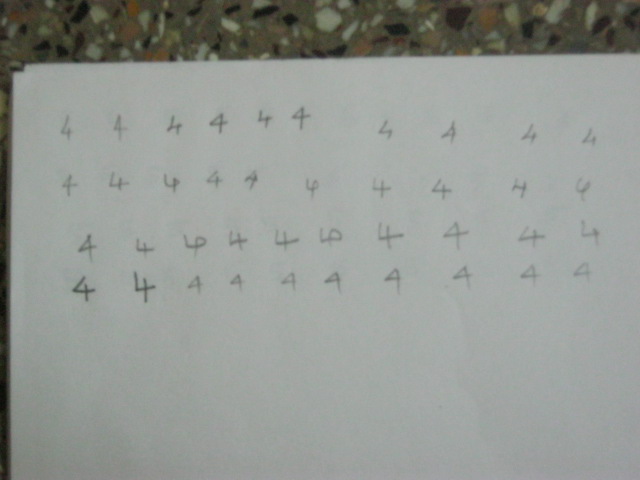 4 4 4 4 4 4 4 4 4 4
4 4 4 4 4 4 4 4 4 4
4 4 4 4 4 4 4 4 4 4
4 4 4 4 4 4 4 4 4 4